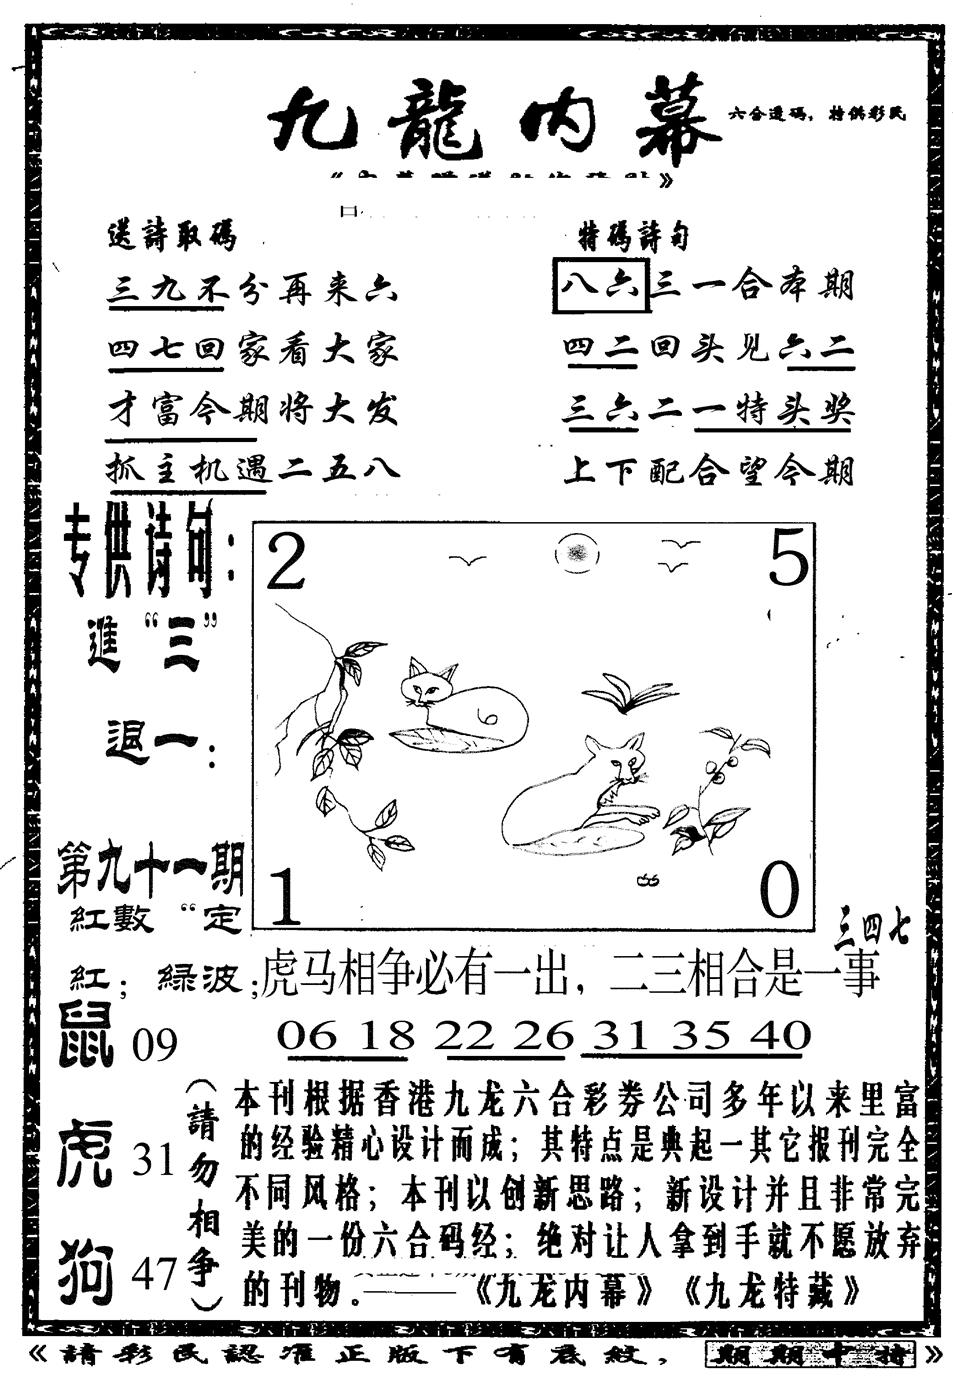 九龍内幕
六合透码，特供彩民
送詩取碼
三九不分再来六
四七回家看大家
才富今期将大发
抓主机遇二五八
特碼詩句
八六三一合本期
四二回头见六二
三六二一特头奖
上下配合望今期
专供诗句：
進“三”
退一：
第九十一期
紅數“定
紅；綠波；
2 5
1 0
三四七
虎马相争必有一出，二三相合是一事
06 18 22 26 31 35 40
鼠 09
虎 31
狗 47
（請勿相争）
本刊根据香港九龙六合彩券公司多年以来里富
的经验精心设计而成；其特点是典起一其它报刊完全
不同风格；本刊以创新思路；新设计并且非常完
美的一份六合码经；绝对让人拿到手就不愿放弃
的刊物。———《九龙内幕》《九龙特藏》
《請彩民認准正版下有底紋，期期中特》